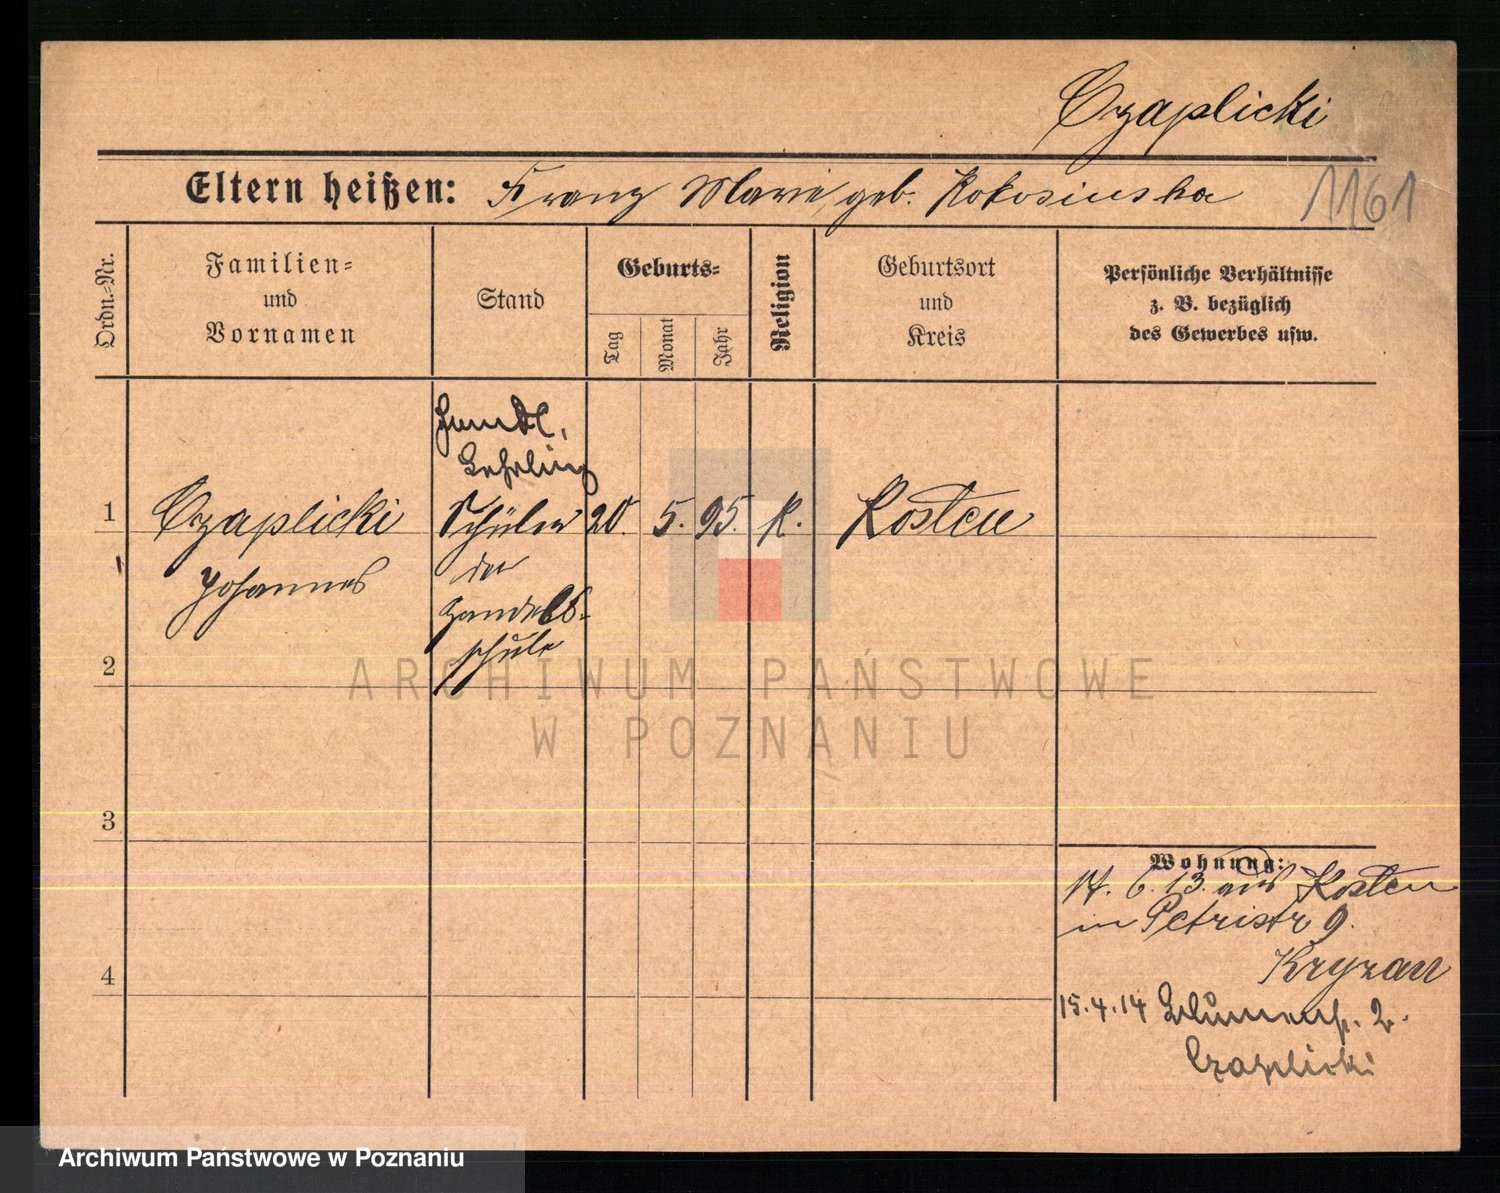 Czaplicki
Eltern heißen: Franz Marie, geb. Kokosinska
1161
Ordn.-Nr.
Familien-
und
Vornamen
Stand
Geburts-
Tag
Monat
Jahr
Religion
Geburtsort
und
Kreis
Persönliche Verhältnisse
z. B. bezüglich
des Gewerbes usw.
Handl.
Lehrling
1 Czaplicki Schüler 20. 5. 95. k. Kosten
Johannes
der
Handels-
schule
2
ARCHIWUM PAŃSTWOWE
W POZNANIU
3
Wohnung:
14. 6. 13. aus Kosten
in Petristr 9.
Kryzan
4
15.4.14 Blumenstr. 2.
Czaplicki
Archiwum Państwowe w Poznaniu